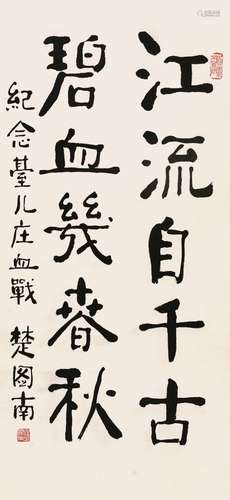 江流自千古
碧血幾春秋
紀念臺儿庄血戰 楚图南